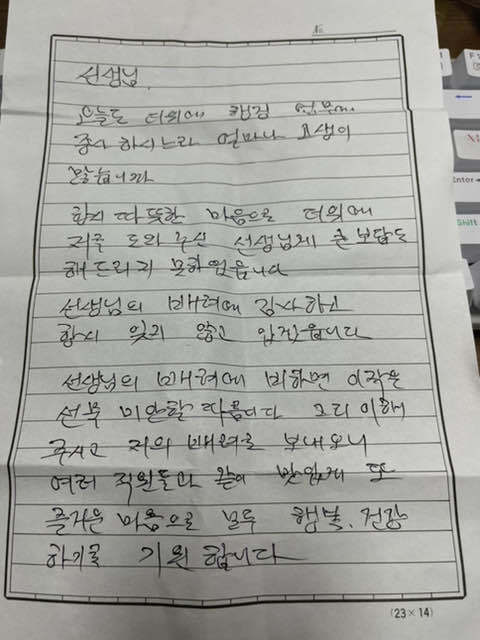 No
선생님.
오늘도 더위에 현장 업무에
종사 하시느라 얼마나 고생이
많습니까
항시 따뜻한 마음으로 더위에
저를 도와 주신 선생님께 큰 보답도
해드리지 못하였읍니다
선생님의 배려에 감사하고
항시 잊지 않고 있겠읍니다
선생님의 배려에 비하면 이 작은
선물 미안할 따름이다 그리 이해
주시고 저의 배려를 보내오니
여러 직원들과 같이 맛있게 또
즐거운 마음으로 모두 행복, 건강
하기를 기원 합니다
(23×14)
Enter
Shift